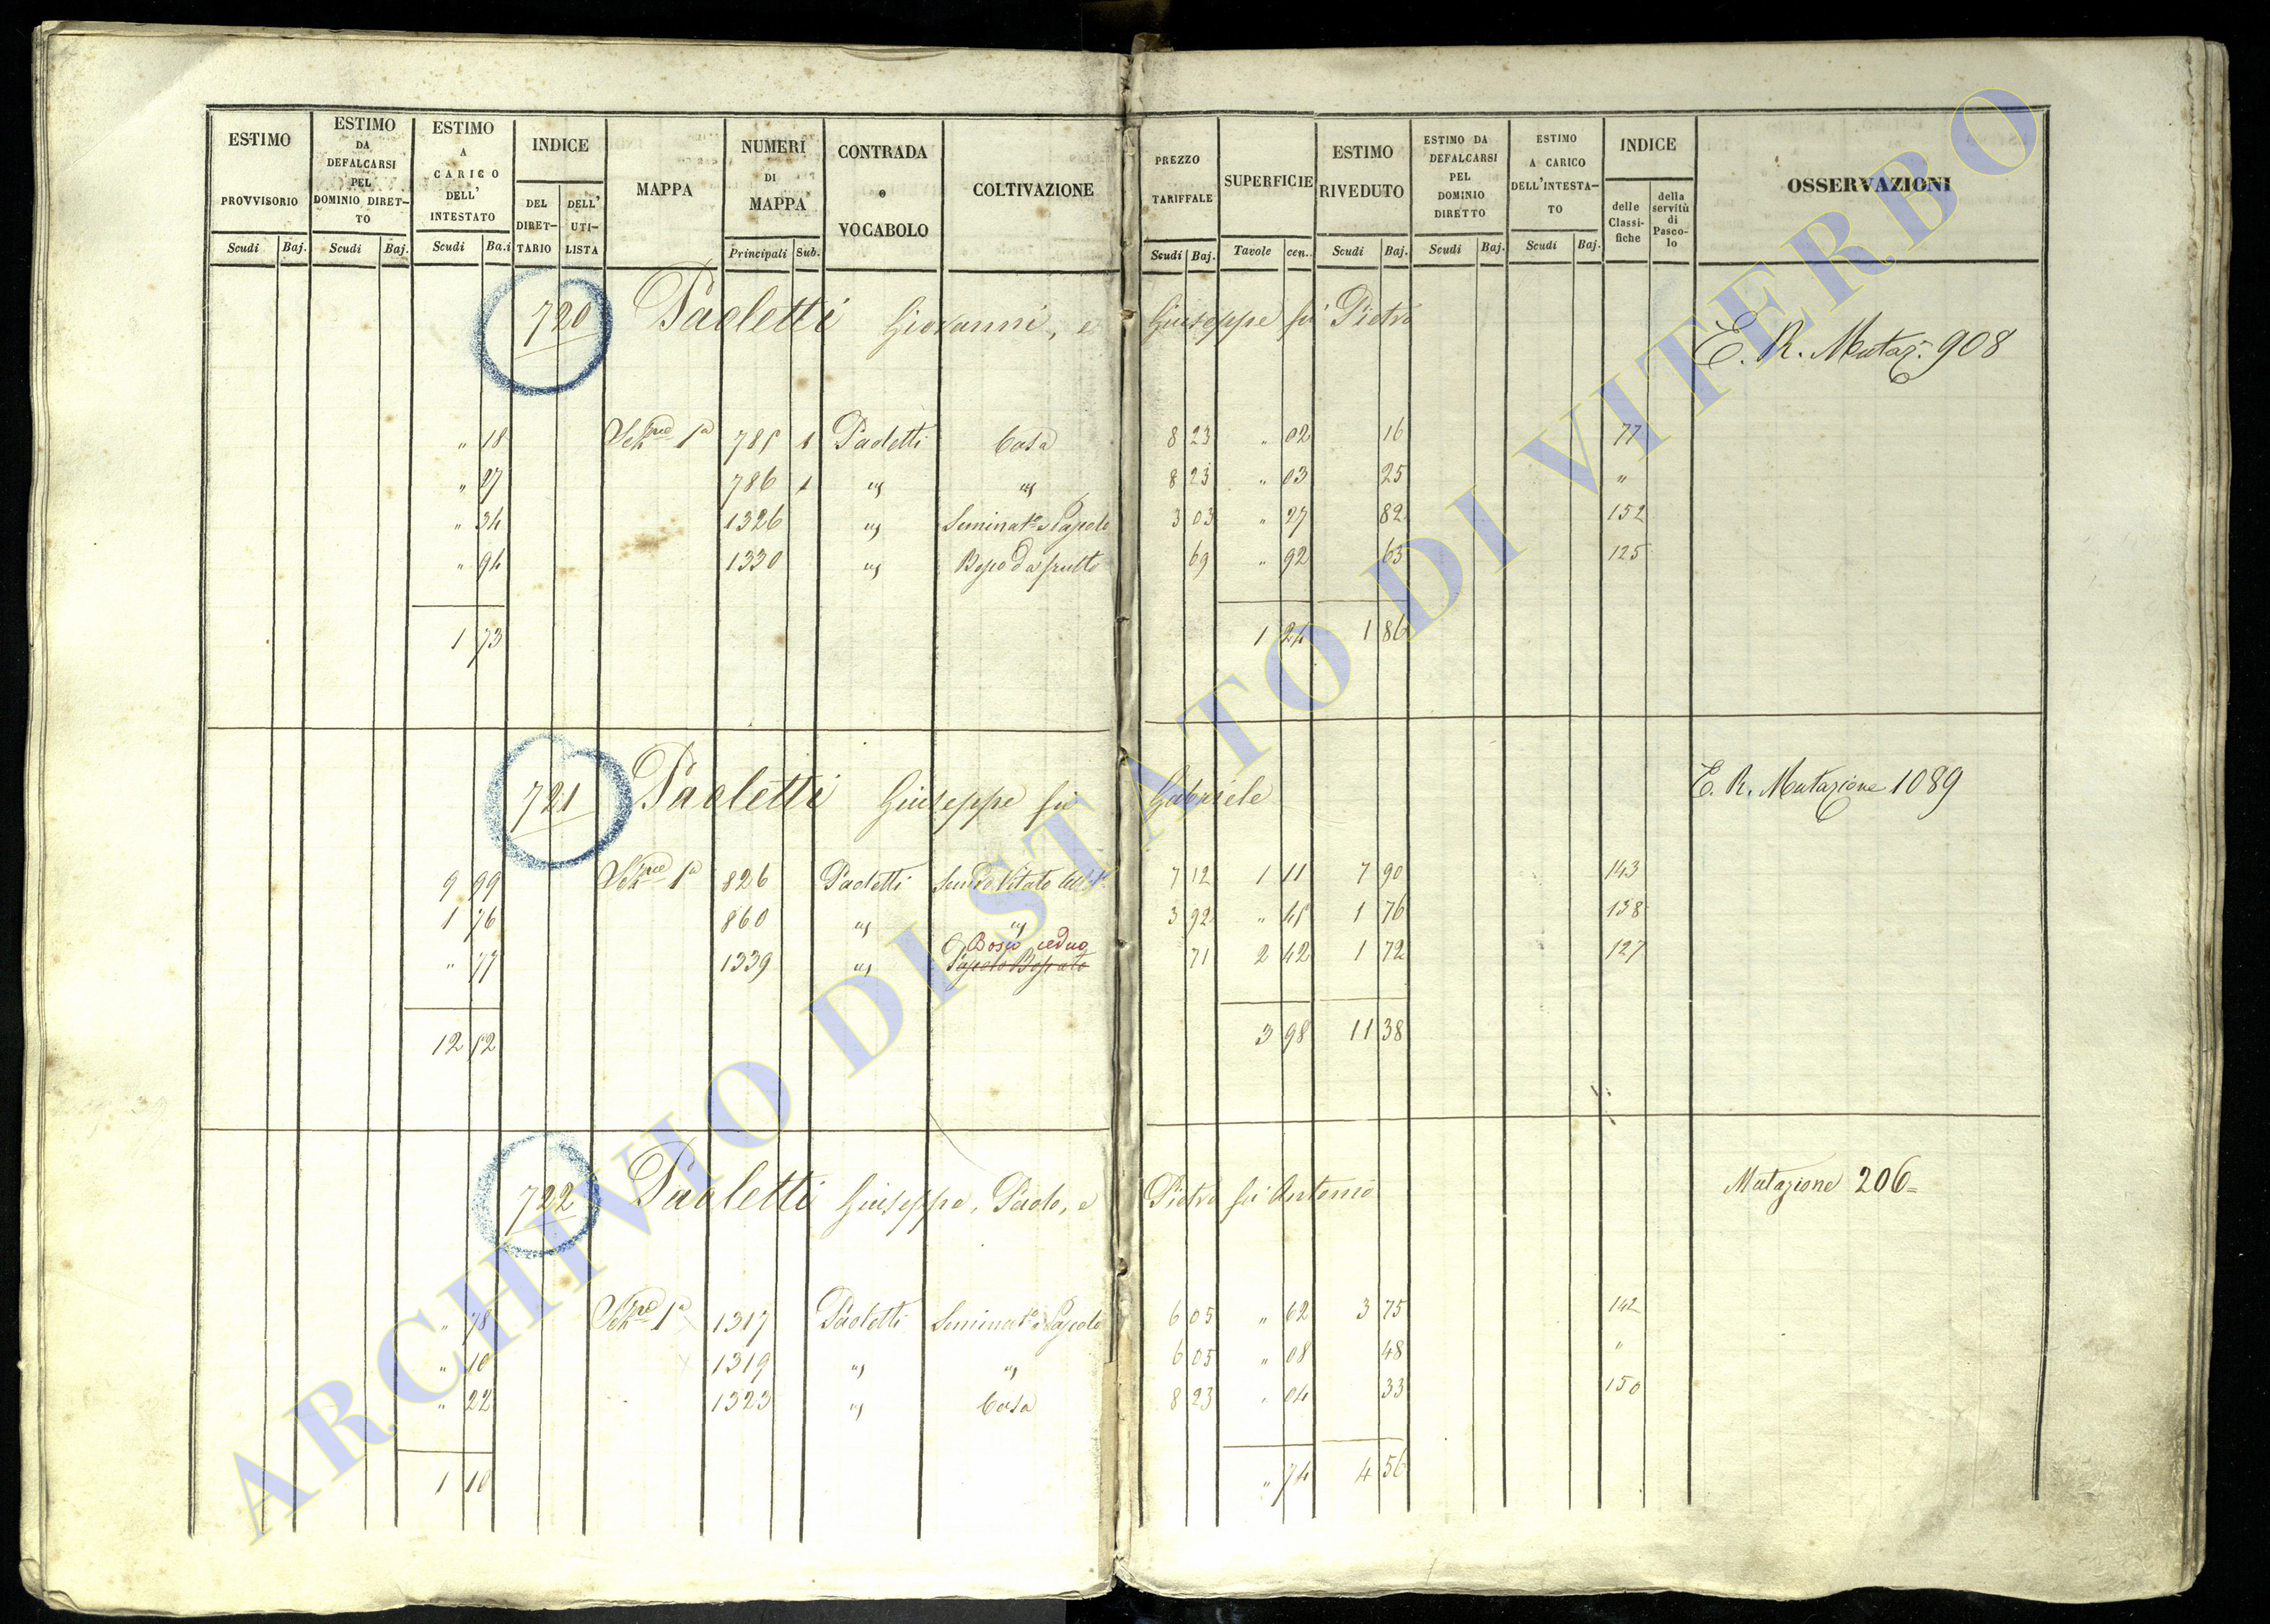 ESTIMO PROVVISORIO Scudi Baj.
ESTIMO DA DEFALCARSI PEL DOMINIO DIRET-TO Scudi Baj.
ESTIMO A CARICO DELL' INTESTATO Scudi Ba.i
INDICE DEL DIRET-TARIO DELL' UTI-LISTA
MAPPA
NUMERI DI MAPPA Principali Sub.
CONTRADA o VOCABOLO
COLTIVAZIONE
PREZZO TARIFFALE Scudi Baj.
SUPERFICIE Tavole cen.
ESTIMO RIVEDUTO Scudi Baj.
ESTIMO DA DEFALCARSI PEL DOMINIO DIRETTO Scudi Baj.
ESTIMO A CARICO DELL'INTESTA-TO Scudi Baj.
INDICE delle Classi-fiche della servitù di Pasco-lo
OSSERVAZIONI
720 Paoletti Giovanni, e Giuseppe fù Pietro
E. R. Mutaz. 908
" 18 1ª 785 1 Paoletti Casa 8 23 " 02 16 77
" 27 786 1 " " 8 23 " 03 25 "
" 34 1326 " Seminat.º e Pascolo 3 03 " 27 82 152
" 94 1330 " Bosco da frutto 69 " 92 63 125
1 73 1 24 1 86
721 Paoletti Giuseppe fù Gabriele
E. R. Mutazione 1089
9 99 1ª 826 Paoletti Vitato 7 12 1 11 7 90 143
1 76 860 " " 3 92 " 45 1 76 138
Bosco ceduo
" 77 1339 " Pascolo Boscato 71 2 42 1 72 127
12 52 3 98 11 38
722 Paoletti Giuseppe, Paolo, e Pietro fù Antonio
Mutazione 206=
" 78 1ª 1317 Paoletti Seminat.º e Pascolo 6 05 " 62 3 75 142
" 10 1319 " " 6 05 " 08 48 "
" 22 1323 " Casa 8 23 " 04 33 150
1 10 " 74 4 56
ARCHIVIO DI STATO DI VITERBO